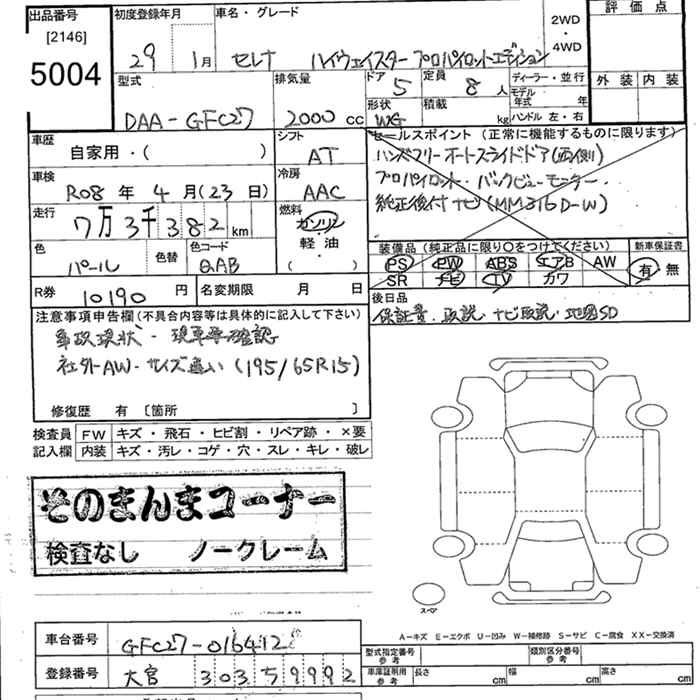 出品番号
[2146]
5004
初度登録年月
29 1月
車名・グレード
セレナ ハイウェイスター プロパイロットエディション
2WD
・
4WD
評価点
外装 内装
型式
DAA-GFC27
排気量
2000 cc
ドア
5
定員
8 人
形状
WG
積載
kg
ディーラー・並行
モデル
年式 年
ハンドル 左・右
車歴
自家用・( )
シフト
AT
車検
R08 年 4 月(23 日)
冷房
AAC
走行
7万3千382 km
燃料
ガソリン
・
軽油
・
( )
色
パール
色替
色コード
QAB
R券
10190 円
名変期限 月 日
セールスポイント (正常に機能するものに限ります)
ハンズフリーオートスライドドア(両側)
プロパイロット・バックビューモニター・
純正後付ナビ(MM316D-W)
装備品 (純正品に限り○をつけてください)
新車保証書
PS PW ABS エアB AW
SR ナビ TV カワ
有・無
後日品
保証書、取説、ナビ取説、地図SD
注意事項申告欄(不具合内容等は具体的に記入して下さい)
事故現状・現車要確認
社外AW・サイズ違い(195/65R15)
修復歴 有 〔箇所 〕
検査員
記入欄
FW キズ・飛石・ヒビ割・リペア跡・×要
内装 キズ・汚レ・コゲ・穴・スレ・キレ・破レ
そのまんまコーナー
検査なし ノークレーム
スペア
A-キズ E-エクボ U-凹み W-補修跡 S-サビ C-腐食 XX-交換済
車台番号
GFC27-016412
登録番号
大宮 303 59992
型式指定番号
参考
類別区分番号
参考
車庫証明用
参考
長さ cm
幅 cm
高さ cm